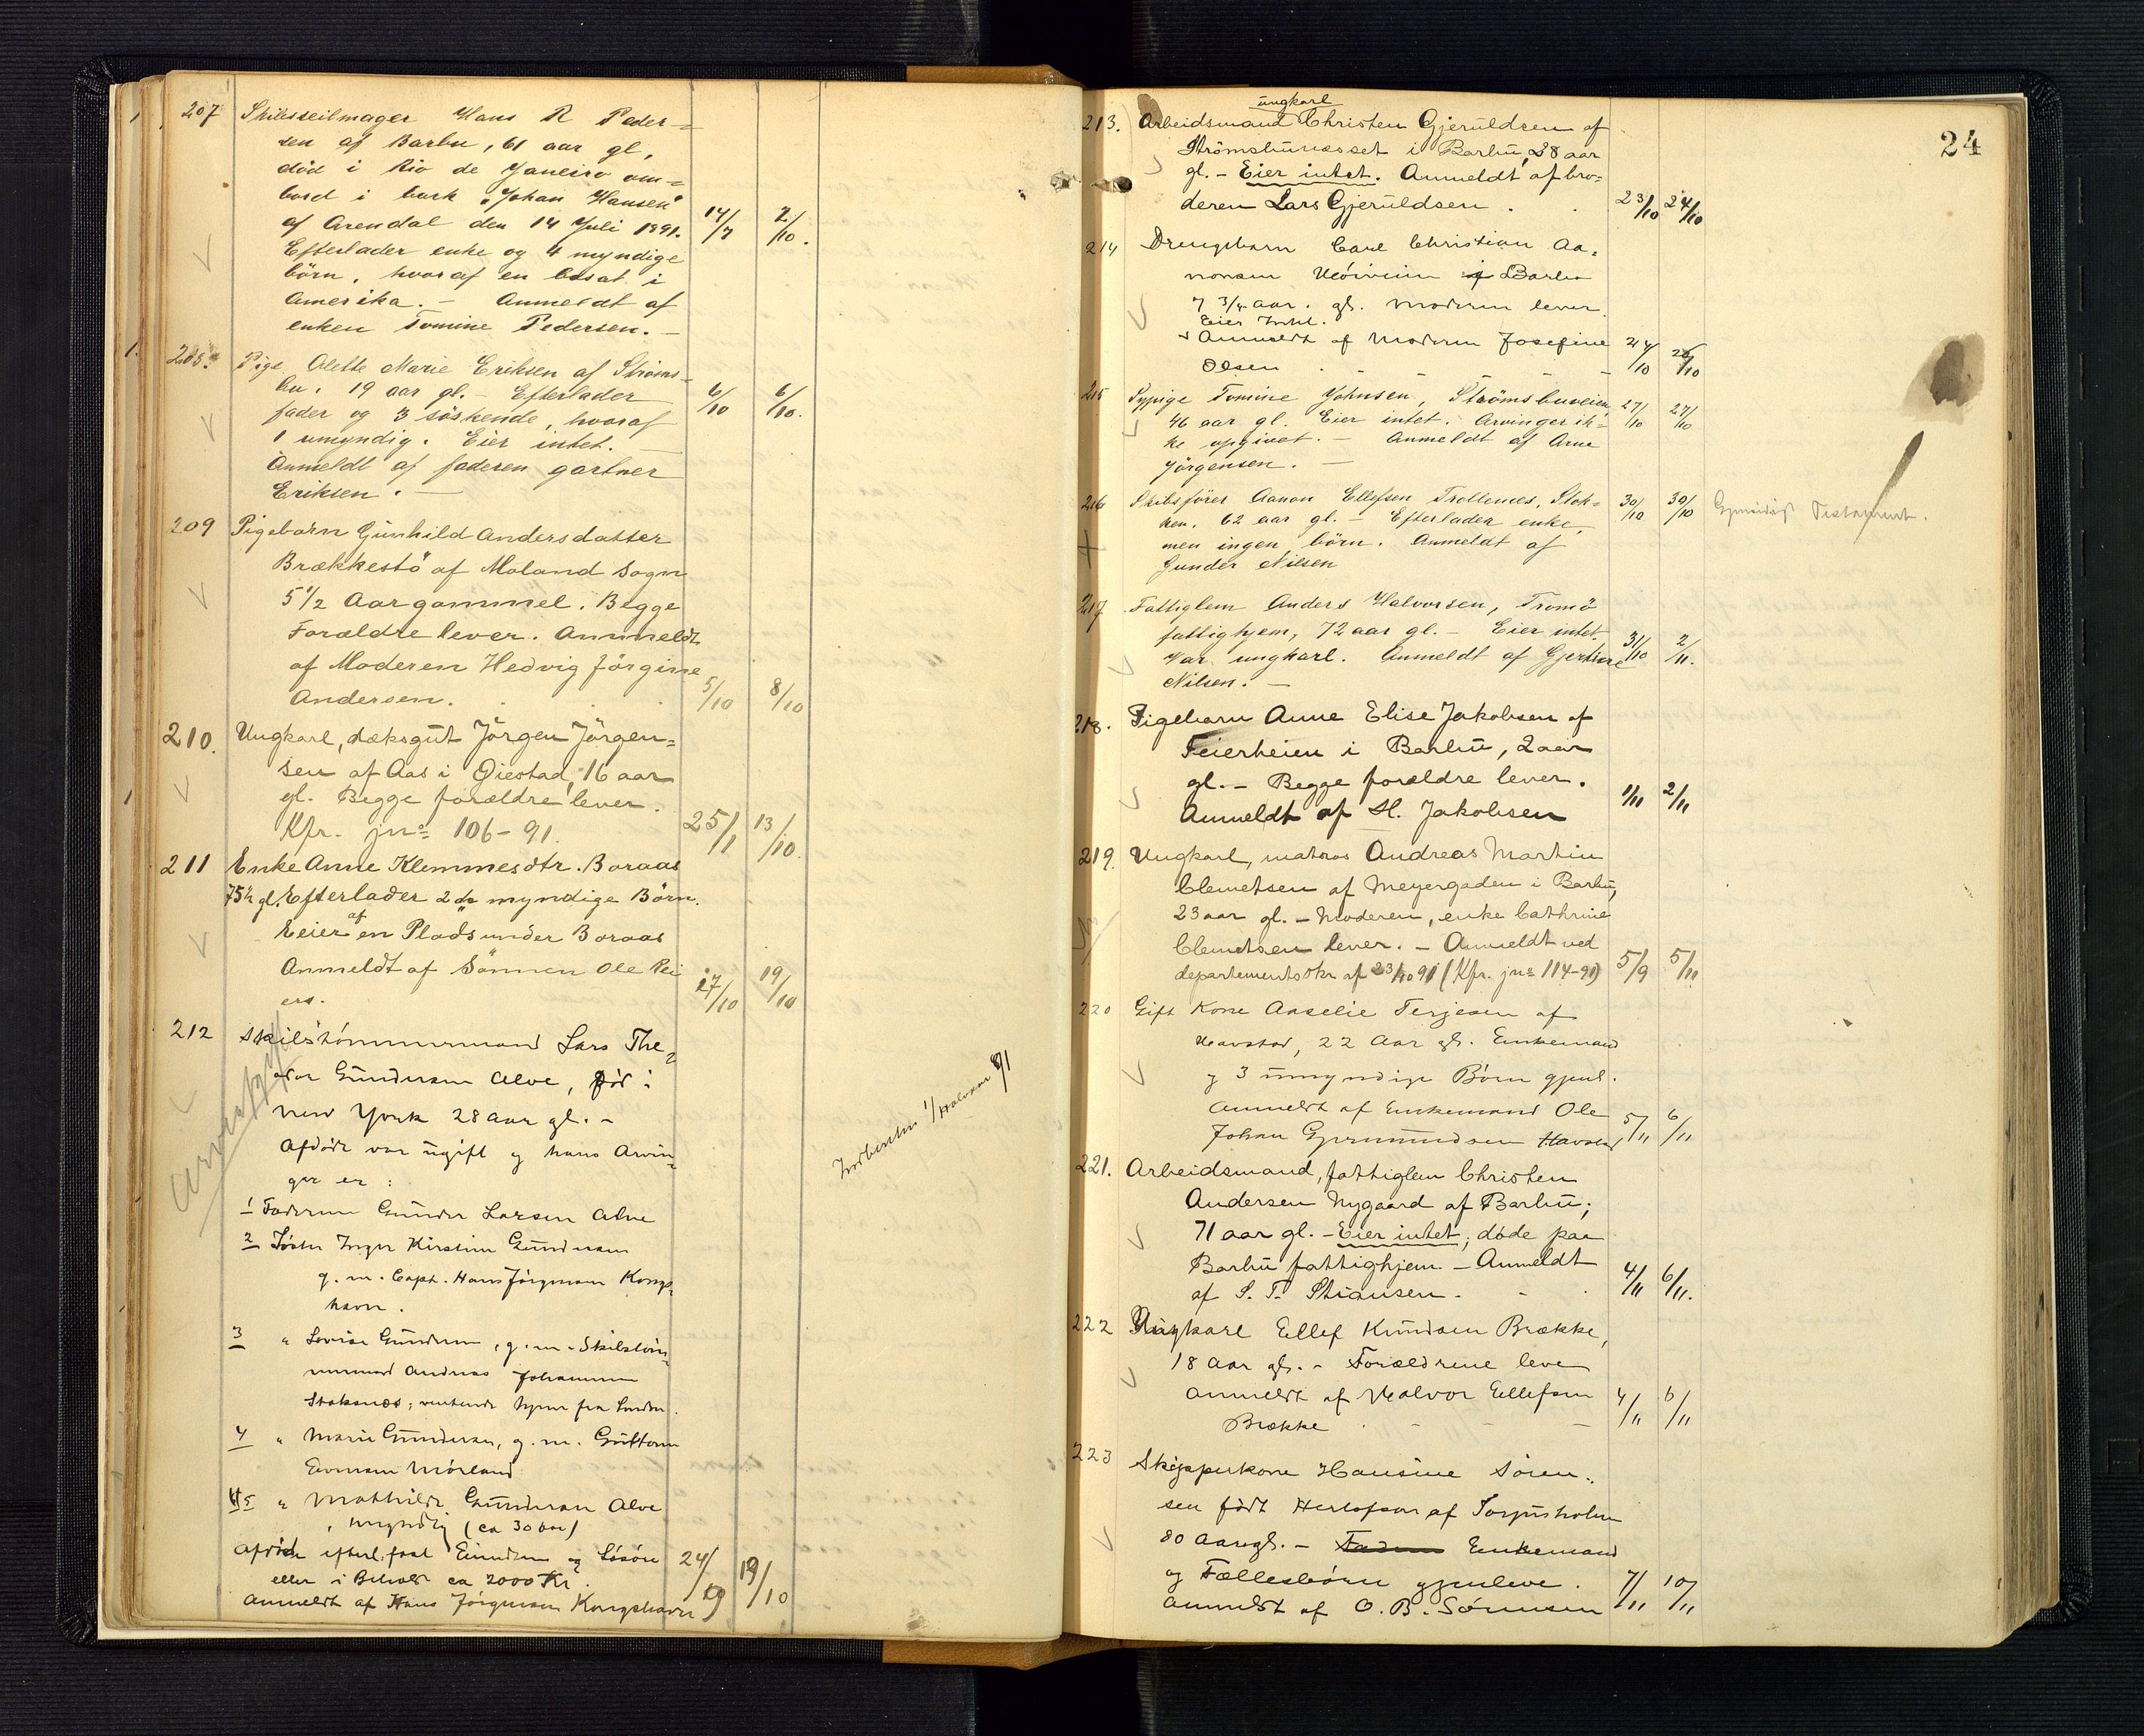 207 Skibsseilmager Hans R Peder=
sen af Barbu, 61 aar gl,
död i Rio de Janeiro om=
bord i bark "Johan Hansen"
af Arendal den 14 Juli 1891. 14/7 2/10.
Efterlader enke og 4 myndige
börn, hvoraf en bosat i
Amerika. – Anmeldt af
enken Tomine Pedersen. –
208. Pige Alette Marie Eriksen af Ströms-
bu, 19 aar gl. – Efterlader 6/10 6/10.
fader og 3 söskende, hvoraf
1 umyndig. Eier intet. –
Anmeldt af faderen gartner
Eriksen. –
209 Pigebarn Gunhild Andersdatter
Brækkestö af Moland Sogn
5 1/2 Aar gammel. Begge
Forældre lever. Anmeldt
af Moderen Hedvig Jörgine
Andersen. 5/10 8/10
210. Ungkarl, dæksgut Jörgen Jörgen=
sen af Aas i Öiestad, 16 aar
gl. Begge forældre lever.
Kfr. jno 106-91. 25/1 13/10.
211 Enke Anne Klemmesdtr. Boraas
75 1/2 gl. Efterlader 2 myndige Börn.
Eeier af en Plads under Boraas
Anmeldt af Sönnen Ole Rei
ers. 17/10 19/10
212 Skibstömmermand Lars The-
odor Gundersen Alve, död i
New York 28 aar gl. –
Afdöde var ugift og hans Arvin-
ger er :
1 Faderen Gunder Larsen Alve
2 Söster Inger Kirstine Gundersen
g. m. Capt. Hans Jörgensen Kongs-
havn.
3 " Lovise Gundersen, g. m. Skibstöm-
mermand Andreas Johannesen
Stoksnæs, ventende hjem fra London.
4 " Marie Gundersen, g. m. Guttorm
Evensen Mörland
5 " Mathilde Gundersen Alve
, myndig (ca 30 aar)
Afdöde efterl. fast Eiendom og Lösöre
eller i Behold ca 2000 Kr. 24/9 19/10
Anmeldt af Hans Jörgensen Kongshavn
24
213. Arbeidsmand ungkarl Christen Gjeruldsen af
Strömsbunæsset i Barbu, 28 aar
gl. – Eier intet. Anmeldt af bro=
deren Lars Gjeruldsen. 23/10 24/10
214 Drengebarn Carl Christian Aa-
nonsen i Barbu
7 3/4 aar. gl. Moderen lever.
Eier Intet.
Anmeldt af Moderen Josefine 24/10 26/10
Olsen
215 Sypige Tomine Johnsen, Strömsbuveien, 27/10 27/10
46 aar gl. Eier intet. Arvinger ik=
ke opgivet. – Anmeldt af Arne
Jörgensen. –
216 Skibsförer Aanon Ellefsen Trollenes, Stok= 30/10 30/10 Gjensidigt Testament.
ken, 62 aar gl. – Efterlader enke,
men ingen börn. Anmeldt af
Gunder Nilsen
217. Fattiglem Anders Halvorsen, Tromö
fattighjem, 72 aar gl. – Eier intet. 31/10 2/11.
Var ungkarl. Anmeldt af Gjertine
Nilsen. –
218. Pigebarn Anne Elise Jakobsen af
Feierheien i Barbu, 2 aar
gl. – Begge forældre lever. 1/11 2/11
Anmeldt af H. Jakobsen
219. Ungkarl, matros Andreas Martin
Clemetsen af Meyergaden i Barbu,
23 aar gl. – Moderen, enke Cathrine
Clemetsen lever. – Anmeldt ved
departementsskr af 23/10 91 (Kfr. jno 114-91) 5/9 5/11.
220 Gift Kone Aaselie Terjesen af
Havstad, 22 Aar gl. Enkemand
og 3 umyndige Börn gjenl.
Anmeldt af Enkemand Ole
Johan Gjermundsen Havstad 5/11 6/11
221. Arbeidsmand, fattiglem Christen
Andersen Nygaard af Barbu;
71 aar gl. – Eier intet; döde paa
Barbu fattighjem – Anmeldt 4/11 6/11.
af S. T. Stiansen.
222 Ungkarl Ellef Knudsen Brække,
18 Aar gl. – Forældrene lever
Anmeldt af Halvor Ellefsen 4/11 6/11
Brække
223 Skipperkone Hansine Sören-
sen födt Herlofsen af Torjusholmen
80 Aar gl. – Enkemand
og Fællesbörn gjenlever. 7/11 10/11
Anmeldt af O. B. Sörensen